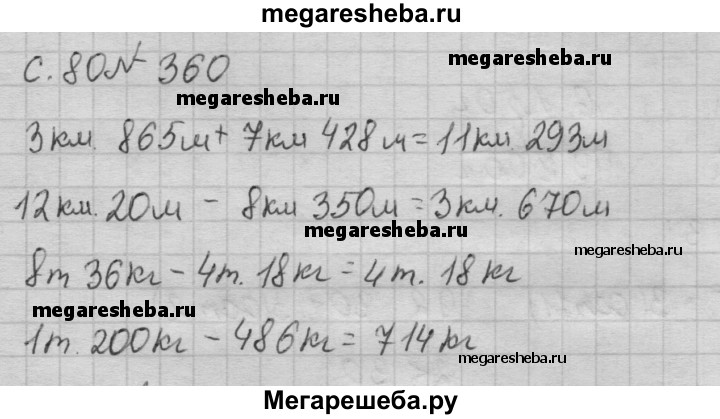 megaresheba.ru
С. 80 № 360
megaresheba.ru
megaresheba.ru
3 км. 865 м + 7 км 428 м = 11 км. 293 м
12 км. 20 м - 8 км 350 м = 3 км. 670 м
megaresheba.ru
megaresheba.ru
8 т 36 кг - 4 т. 18 кг = 4 т. 18 кг
megaresheba.ru
1 т. 200 кг - 486 кг = 714 кг
megaresheba.ru
Мегарешеба.ру